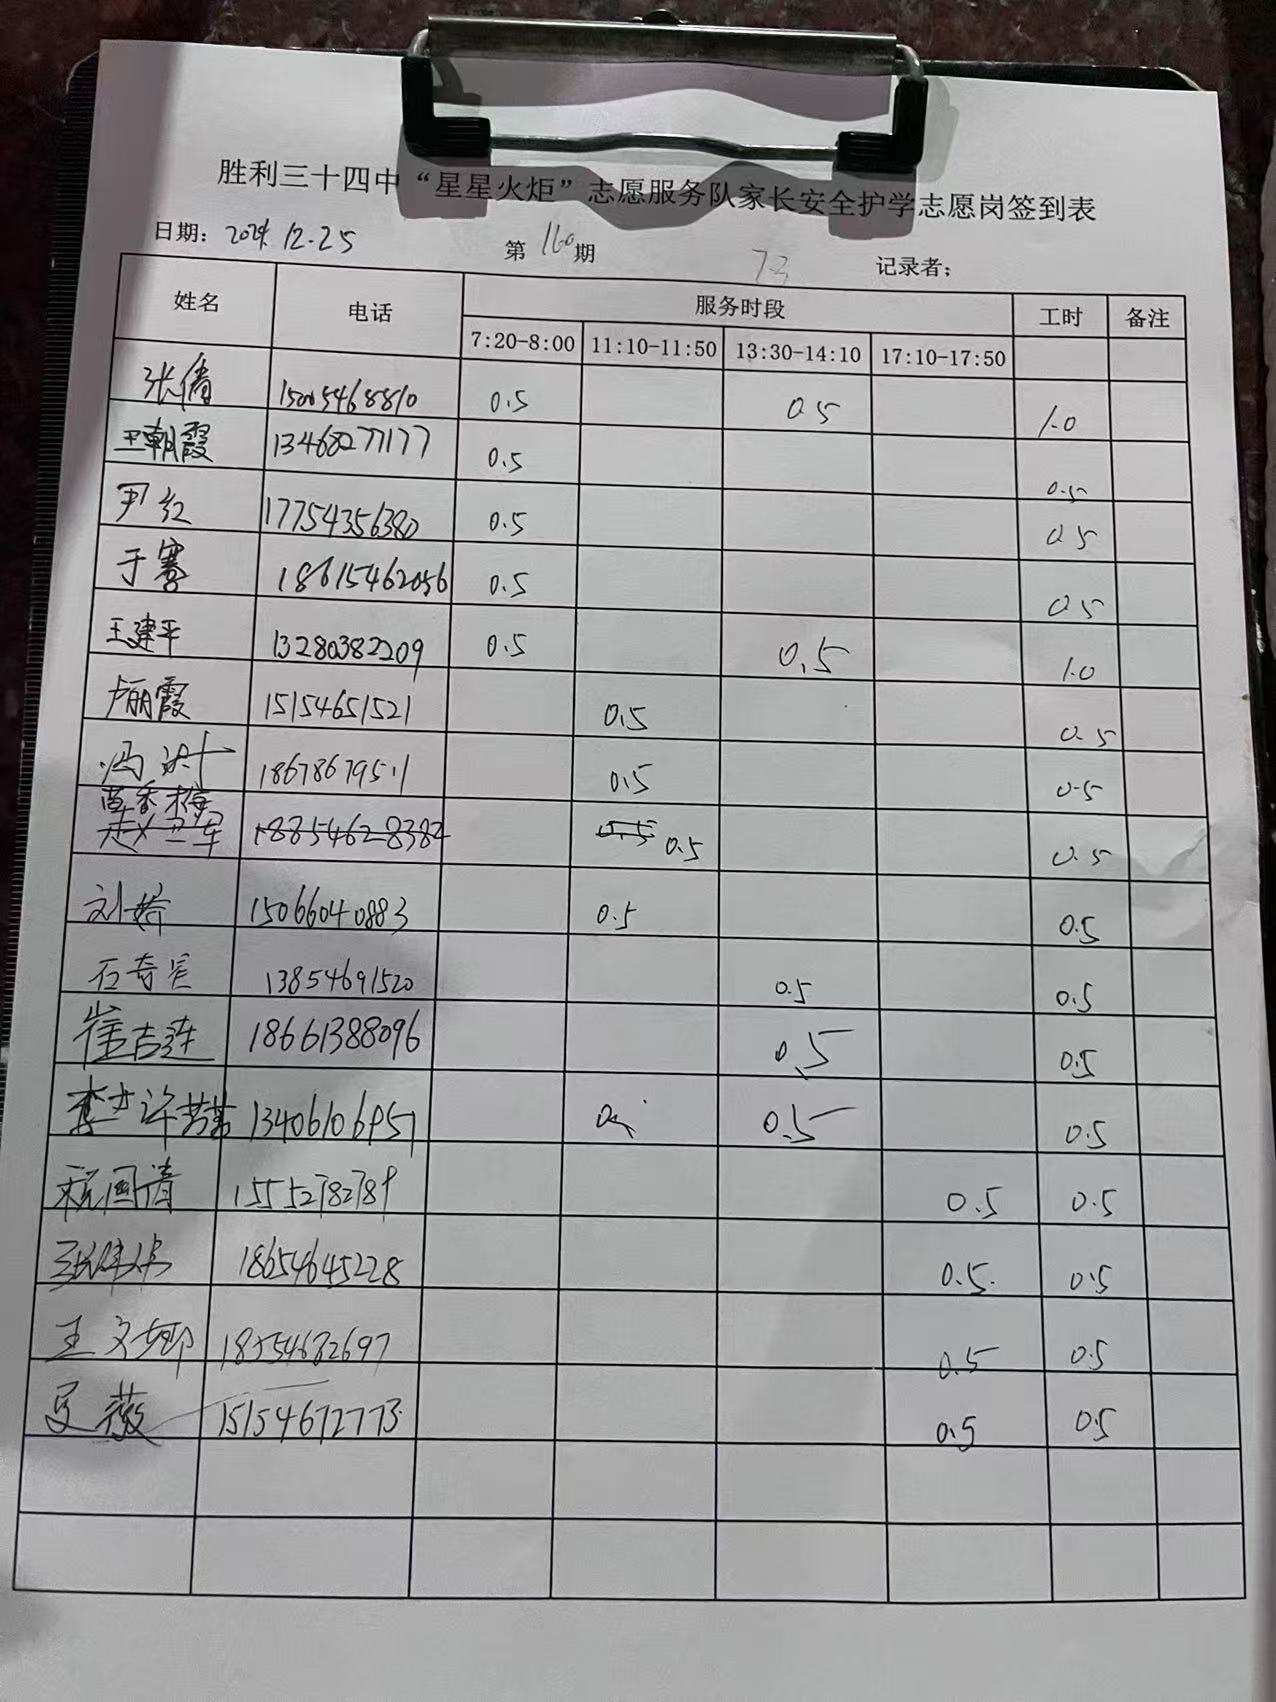 胜利三十四中“星星火炬”志愿服务队家长安全护学志愿岗签到表
日期: 2024.12.25 第160期 73 记录者:
姓名 电话 服务时段 工时 备注
7:20-8:00 11:10-11:50 13:30-14:10 17:10-17:50
张倩 15005468810 0.5 0.5 1.0
王朝霞 13468277177 0.5 0.5
尹红 17754356380 0.5 0.5
于骞 18615462056 0.5 0.5
王建平 13280382209 0.5 0.5 1.0
卢丽霞 15154651521 0.5 0.5
冯 18678679511 0.5 0.5
董香梅
赵卫军 18854628382 0.5 0.5 0.5
刘娇 15066040883 0.5 0.5
石奇 13854691520 0.5 0.5
崔吉莲 18661388096 0.5 0.5
许芳芳 13406106951 0.5 0.5
程国清 15552782789 0.5 0.5
张伟伟 18654645228 0.5 0.5
王文娜 18554682697 0.5 0.5
吴薇 15154672773 0.5 0.5